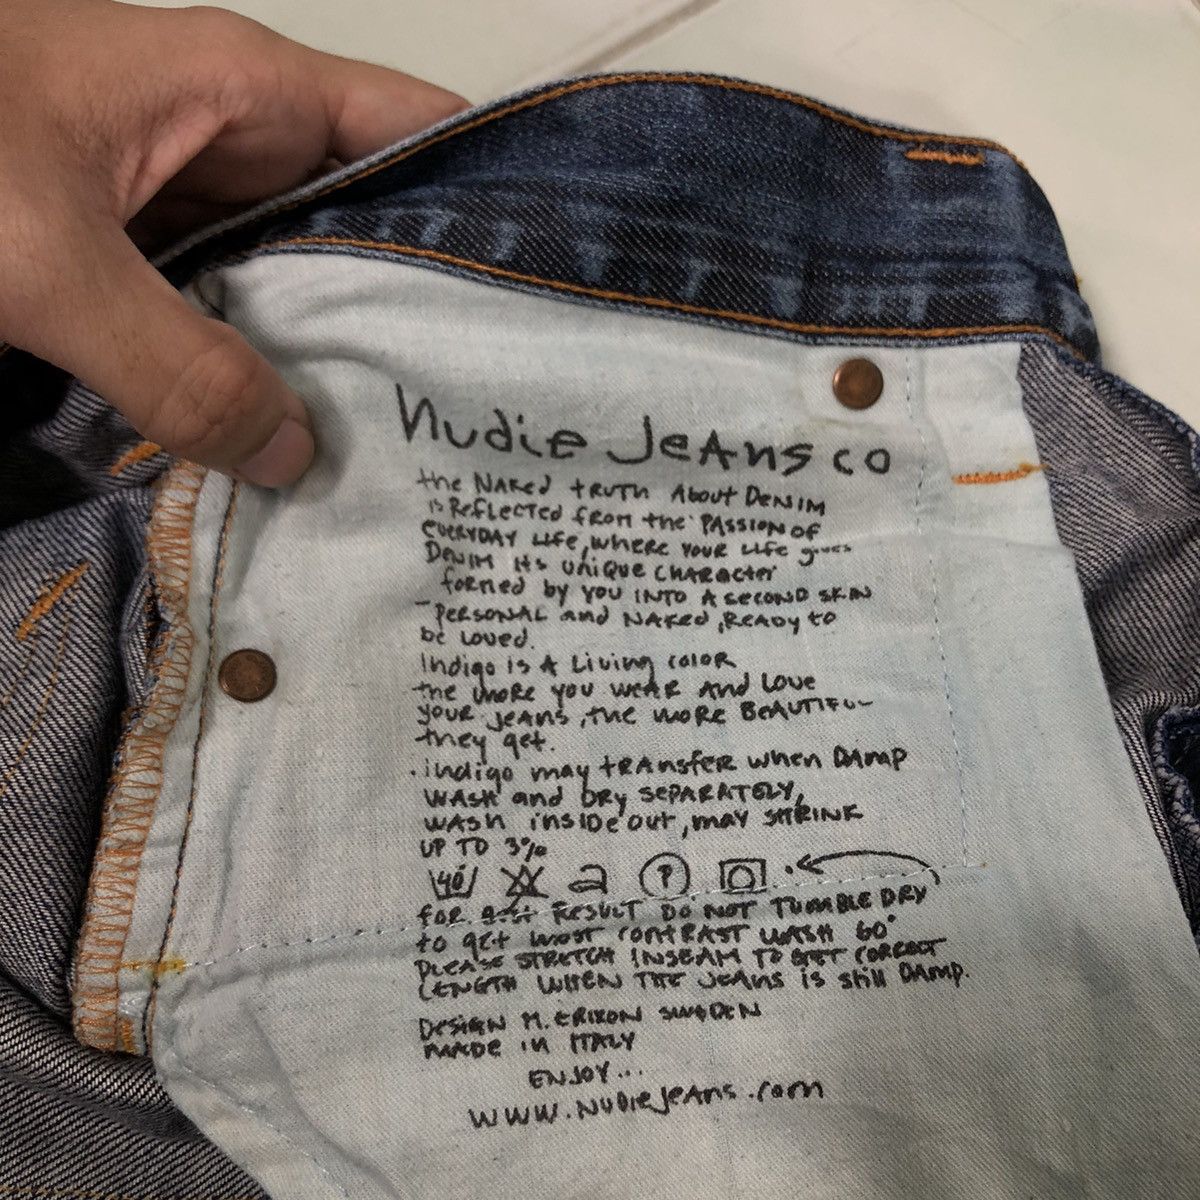 Nudie Jeans co
the Naked truth About Denim
is Reflected from the passion of
everyday life, where your life gives
Denim its unique character
formed by you into a second skin
- personal and naked, ready to
be loved.
Indigo is a living color
the more you wear and love
your jeans, the more beautiful
they get.
. indigo may transfer when damp
wash and dry separately,
wash inside out, may shrink
up to 3%
40 P
for best result do not tumble dry
to get most contrast wash 60°
please stretch inseam to get correct
length when the jeans is still damp.
Design M. Erixon Sweden
made in Italy
Enjoy...
www.nudiejeans.com